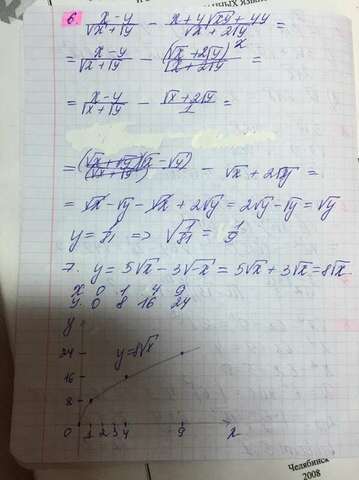 6. (x-y)/(√x+√y) - (x+4√xy+4y)/(√x+2√y) =
= (x-y)/(√x+√y) - (√x+2√y)²/(√x+2√y) =
= (x-y)/(√x+√y) - (√x+2√y)/1 =
= (√x+√y)(√x-√y)/(√x+√y) - √x+2√y =
= √x-√y-√x+2√y=2√y-√y=√y
y=1/81 => √1/81=1/9
7. y=5√x-3√-x=5√x+3√x=8√x
x 0 1 4 9
y 0 8 16 24
y
24
y=8√x
16
8
0 1 2 3 4 9 x
Челябинск
2008